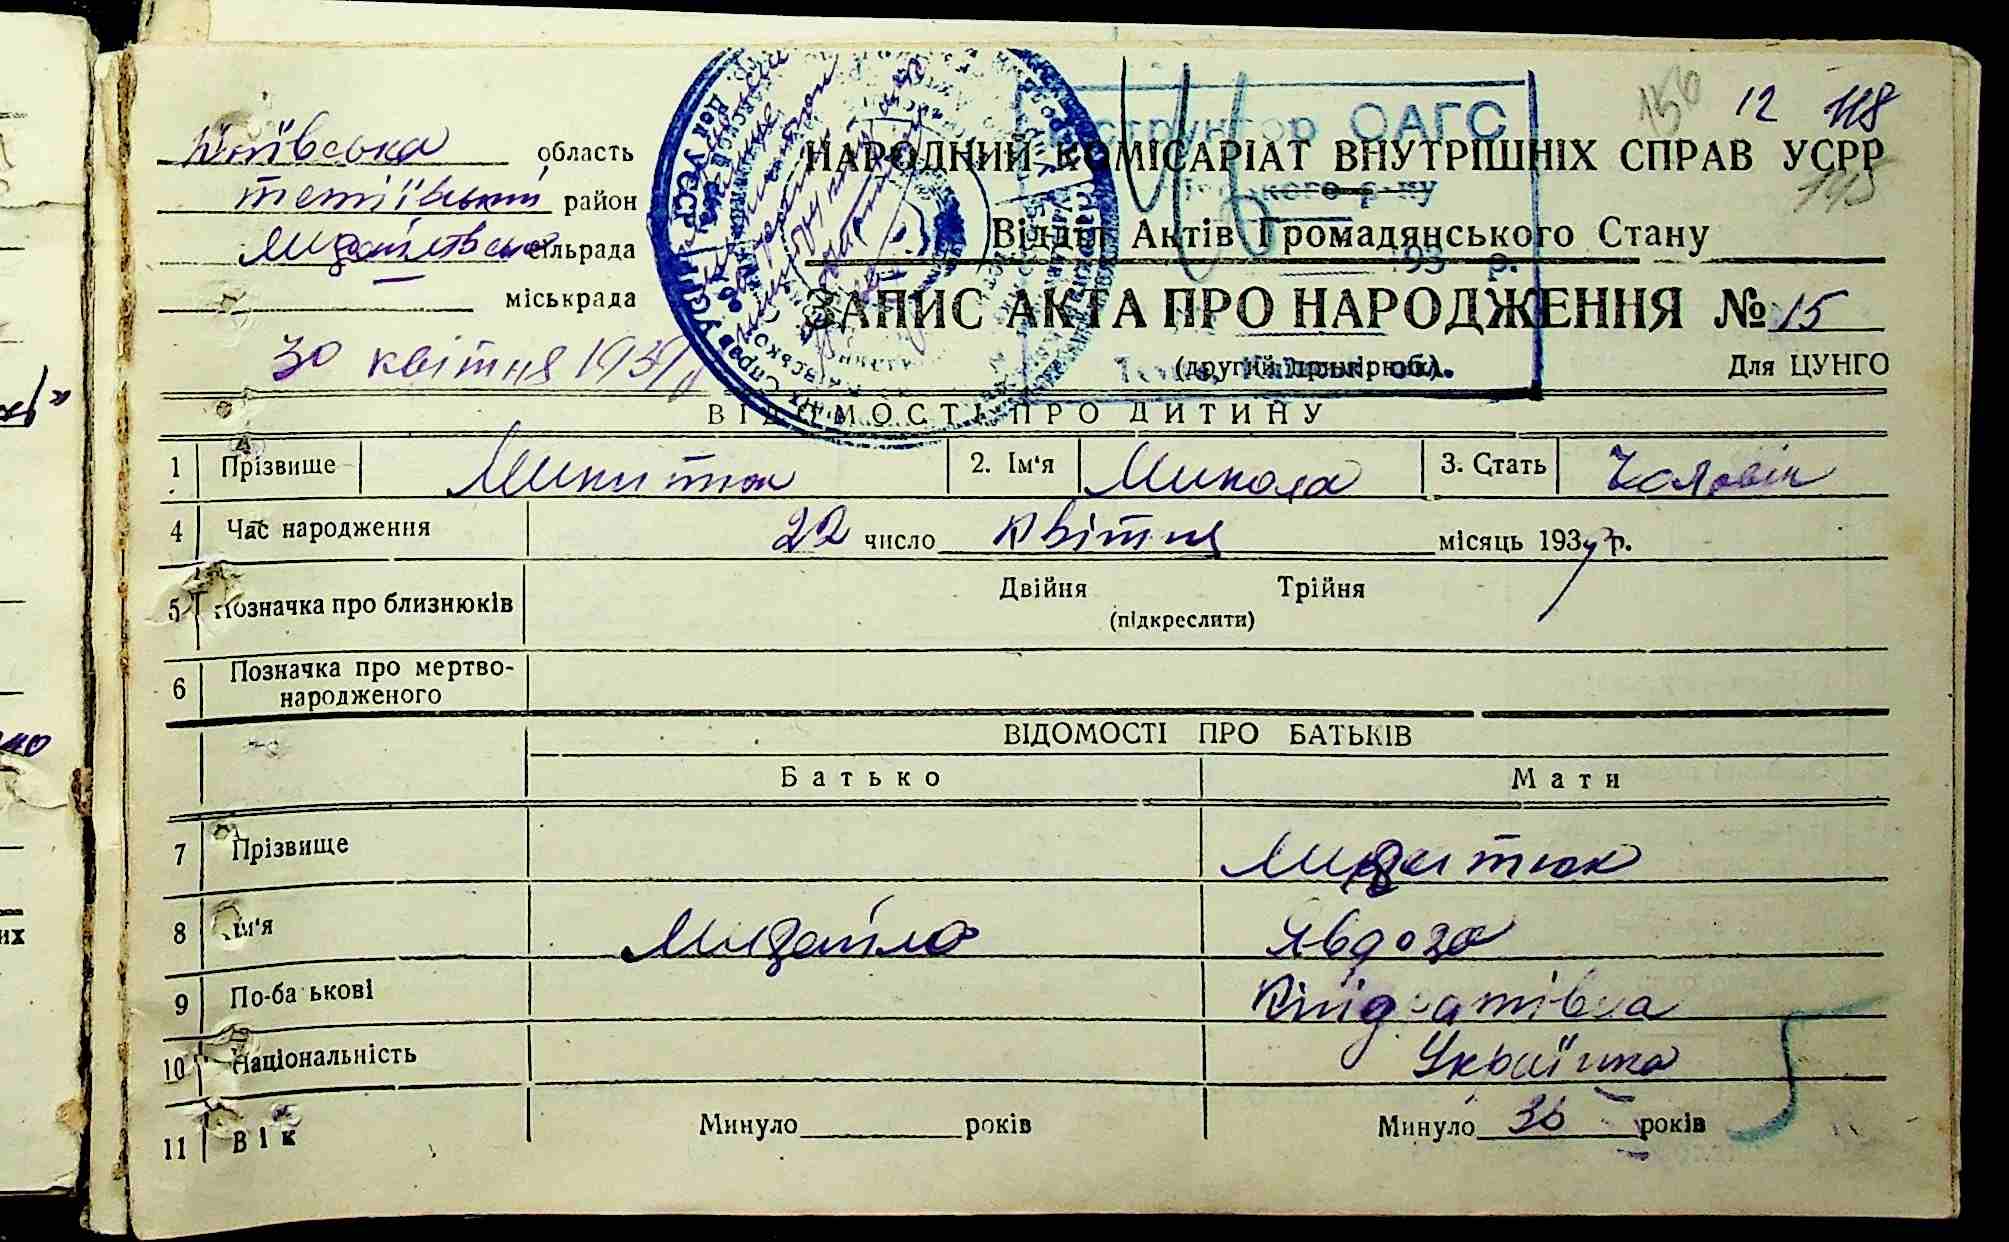 12 118
Київська область
Тетіївський район
Михайлівська сільрада
міськрада
НАРОДНИЙ КОМІСАРІАТ ВНУТРІШНІХ СПРАВ УСРР
Відділ Актів Громадянського Стану
ЗАПИС АКТА ПРО НАРОДЖЕННЯ № 15
(другий примірник)
Для ЦУНГО
30 квітня 193
ВІДОМОСТІ ПРО ДИТИНУ
1 Прізвище Микитюк 2. Ім'я Микола 3. Стать Чоловік
4 Час народження 22 число Квітня місяць 193 р.
5 Позначка про близнюків Двійня Трійня
(підкреслити)
6 Позначка про мертво-
народженого
ВІДОМОСТІ ПРО БАТЬКІВ
Батько Мати
7 Прізвище Микитюк
8 Ім'я Михайло Явдоха
9 По-ба ькові
10 Національність Українка
11 Вік Минуло років Минуло 36 років
ОАГС
193 р.